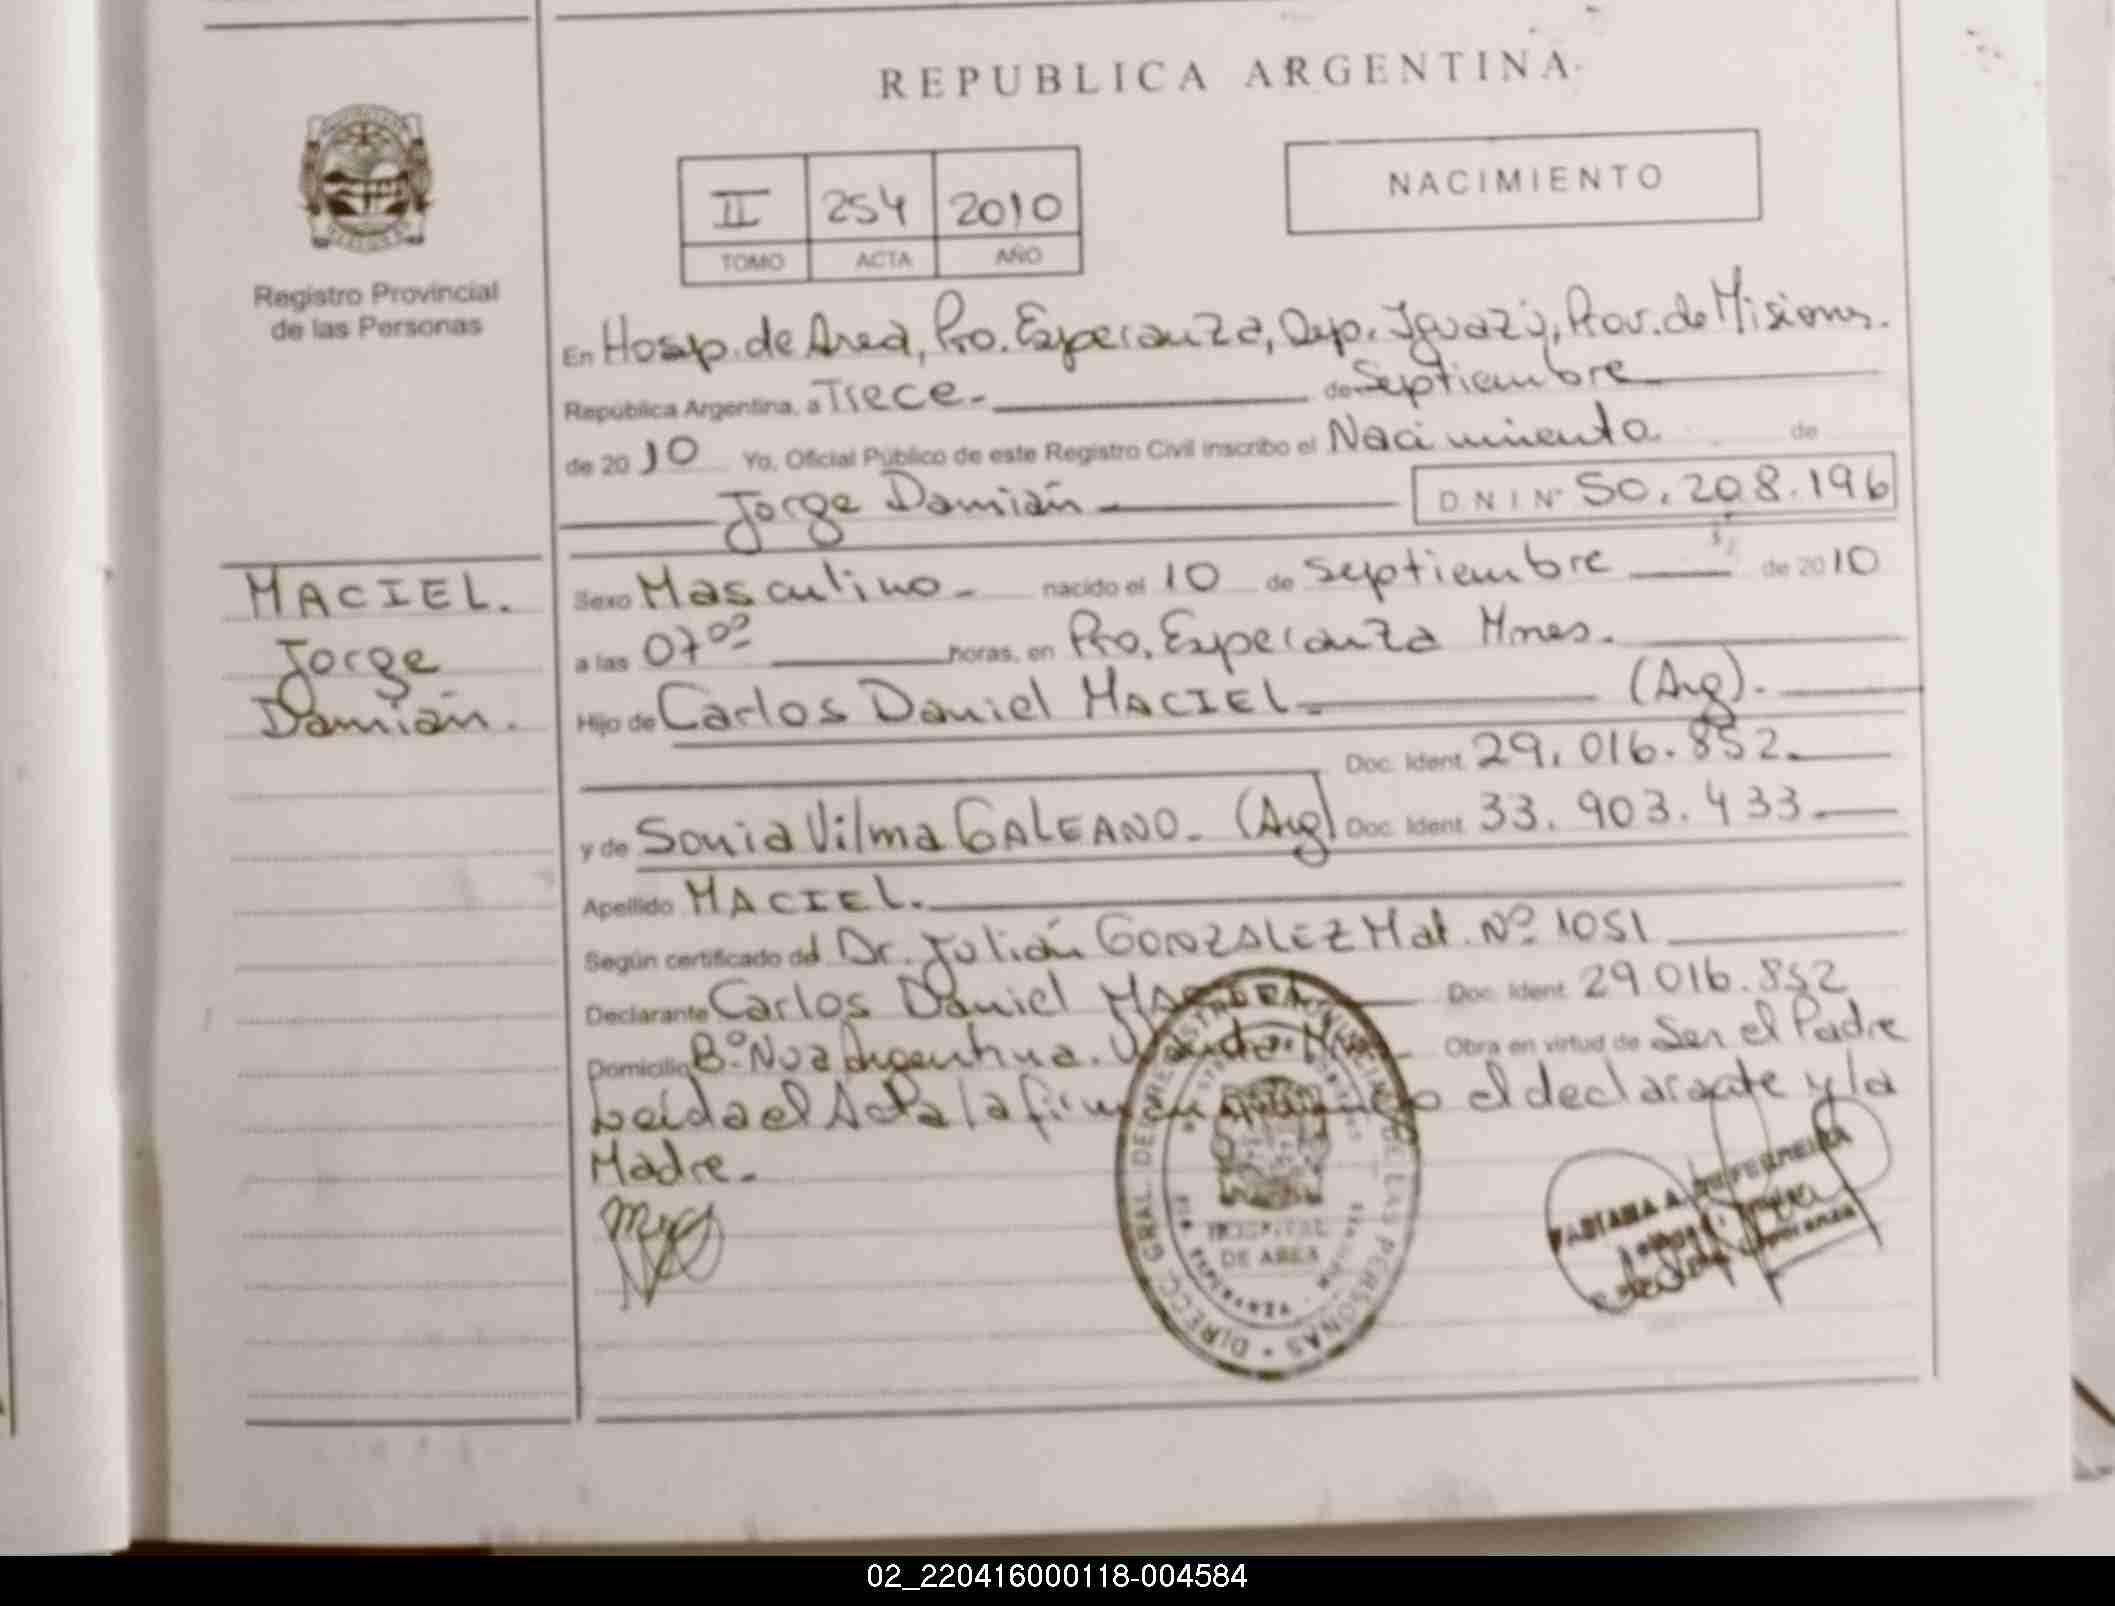 REPUBLICA ARGENTINA
II 254 2010
TOMO ACTA AÑO
NACIMIENTO
Registro Provincial
de las Personas
En Hosp. de Area, Pto. Esperanza, Dep. Iguazú, Prov. de Misiones.
República Argentina, a Trece.- de Septiembre
de 2010 Yo, Oficial Público de este Registro Civil inscribo el Nacimiento de
Jorge Damián
D N I Nº 50.208.196
MACIEL.
Jorge
Damián.
Sexo Masculino.- nacido el 10 de Septiembre de 2010
a las 07⁰⁰ horas, en Pto. Esperanza Mnes.
Hijo de Carlos Daniel MACIEL.- (Arg).
Doc. Ident. 29.016.852.
y de Sonia Vilma GALEANO.- (Arg) Doc. Ident. 33.903.433
Apellido MACIEL.
Según certificado del Dr. Julián GONZALEZ Mat. Nº 1051
Declarante Carlos Daniel Doc. Ident. 29.016.852
Domicilio Bº Nva Argentina. Obra en virtud de Ser el Padre
Leída el Acta la firman el declarante y la
Madre.-
DIRECC. GRAL. DEL REGISTRO PROVINCIAL DE LAS PERSONAS
HOSPITAL
DE AREA
FABIANA A. FERREIRA
02_220416000118-004584